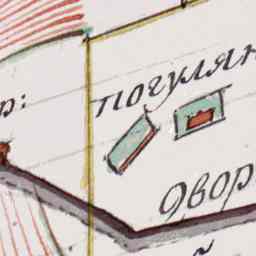 р:
погулян
двор